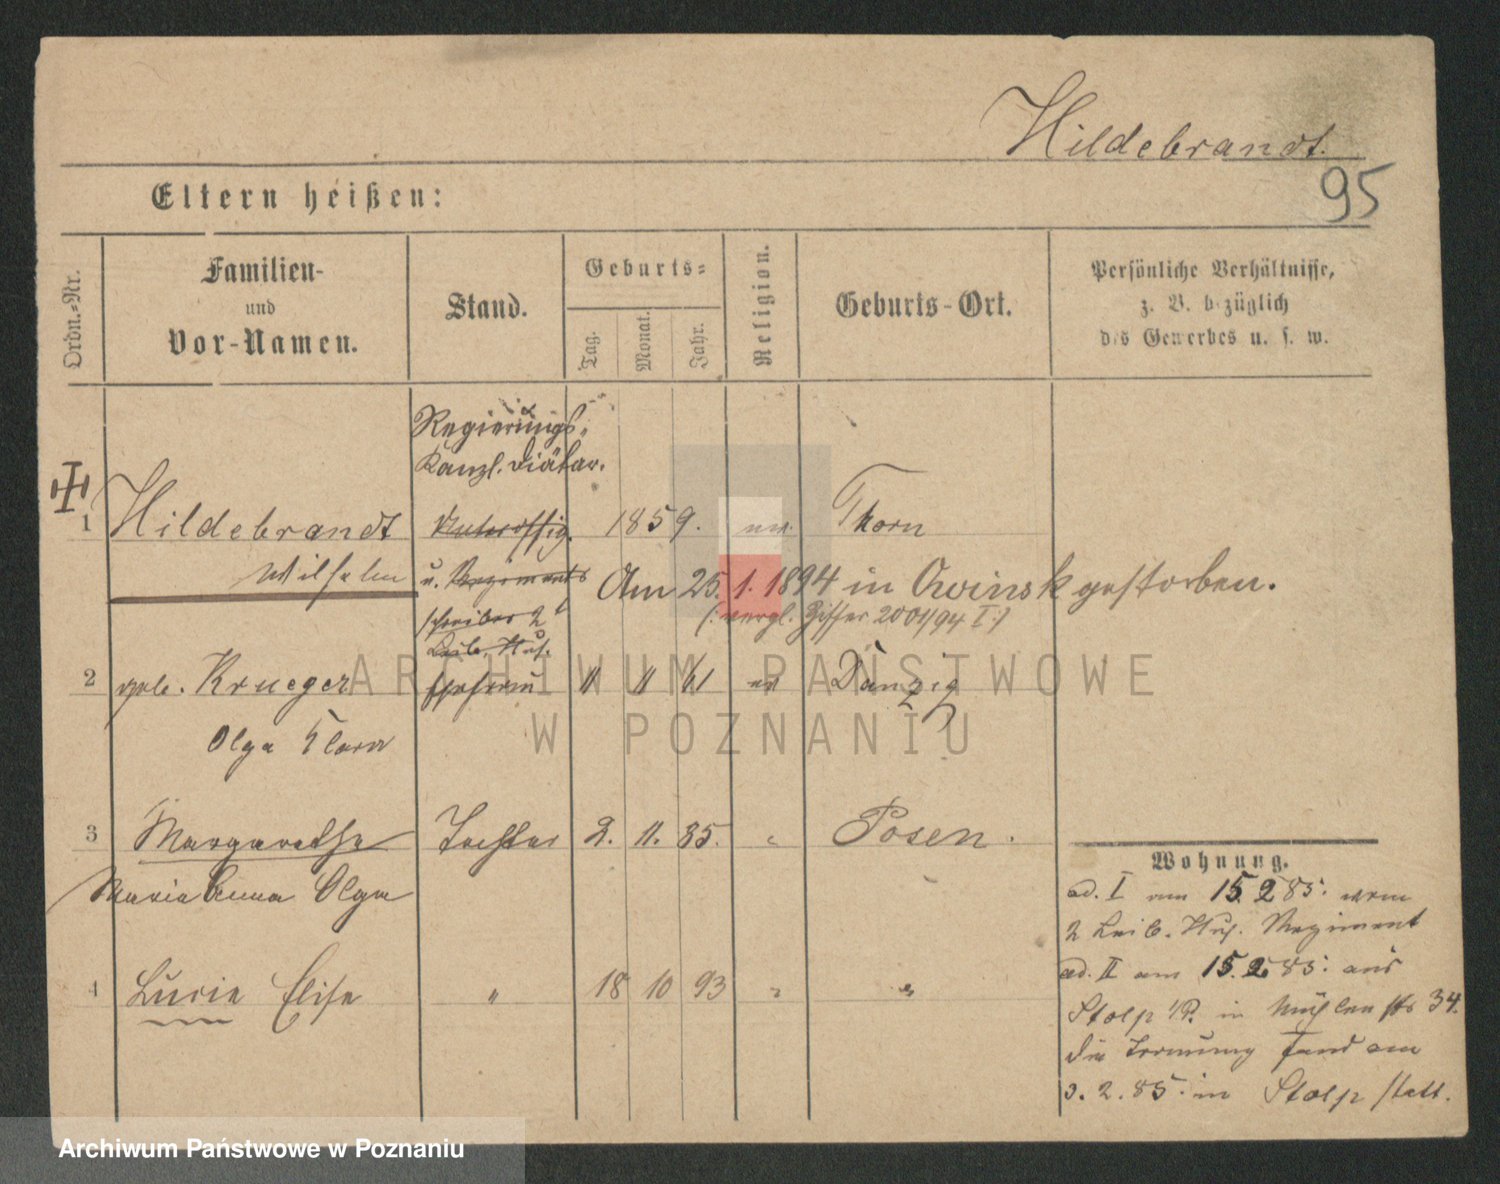 Hildebrandt.
95
Eltern heißen:
Ordn.-Nr.
Familien-
und
Vor-Namen.
Stand.
Geburts-
Tag.
Monat.
Jahr.
Religion.
Geburts-Ort.
Persönliche Verhältnisse,
z. B. bezüglich
des Gewerbes u. s. w.
Regierungs-
Kanzl. Diätar.
1 Hildebrandt Unteroffiz. 1859. ev. Thorn
Wilhelm u. Regiments
schreiber 2
Leib. Hus.
Am 25.1.1894 in Owinsk gestorben.
(: vergl. Ziffer 2001/94 I :)
2 geb. Krueger Ehefrau 11 11 61 ev Danzig
Olga Clara
3 Margarethe Tochter 2. 11. 85. " Posen.
Maria Anna Olga
4 Lucie Elise " 18 10 93 " "
Wohnung.
ad. I am 15.2 85. vom
2 Leib. Hus. Regiment
ad. II am 15.2 85. aus
Stolp i/P. in Mühlenstr 34.
Die Trauung fand am
3. 2. 85. in Stolp statt.
ARCHIWUM PAŃSTWOWE
W POZNANIU
Archiwum Państwowe w Poznaniu